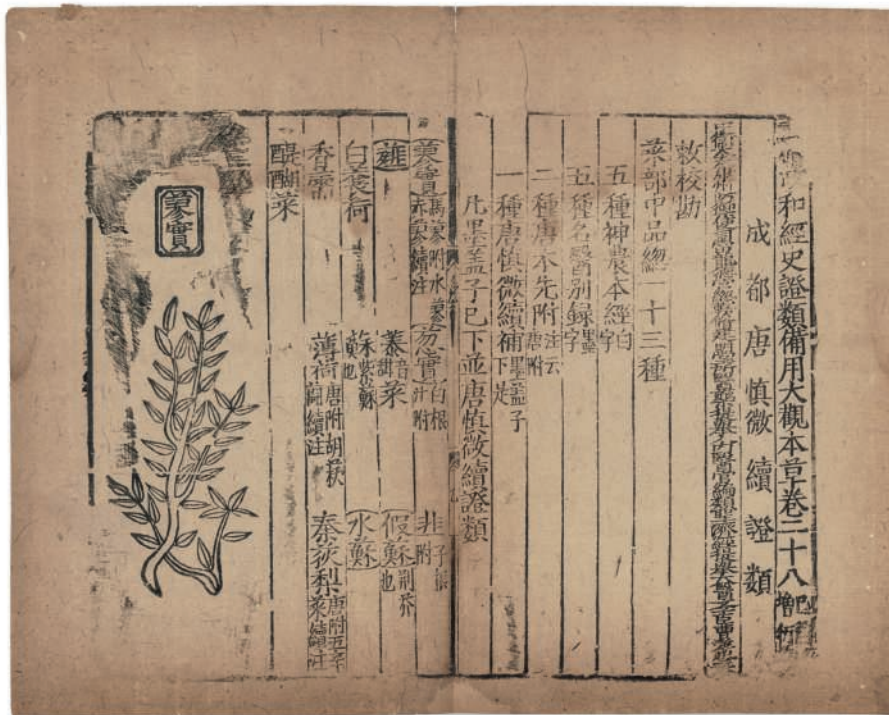 和經史證類備用大觀本草卷二十八
成都唐慎微續證類
敕校勘
菜部中品總一十三種
五種神農本經白字
五種名醫別録墨字
二種唐本先附注云唐附
一種唐慎微續補墨盖子下是
凡墨盖子已下並唐慎微續證類
蓼實馬蓼附水蓼赤蓼續注 葱實白根汁附 韭子根附
薤 菾音甜菜 假蘇荆芥也
白蘘荷 蘇紫蘇也 水蘇
香薷 薄荷唐附胡菝續注 秦荻梨唐附五辛菜續注
醍醐菜
蓼實